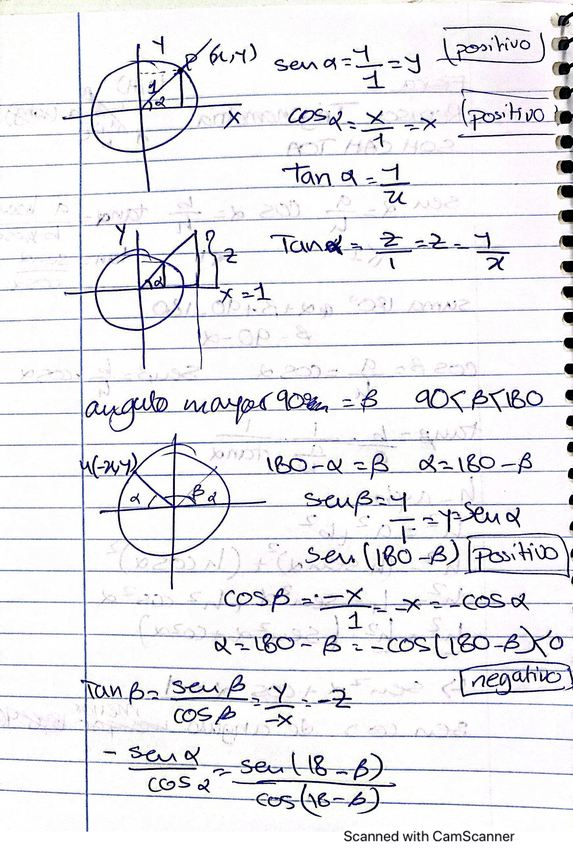 Y
R (x,y)
1
α
X
sen α = y/1 = y (positivo)
cos α = x/1 = x (positivo)
Tan α = y/x
Y
P
z
α
x = 1
Tan α = z/1 = z = y/x
angulo mayor 90 = β 90 < β < 180
(-x,y)
α
β
α
180 - α = β α = 180 - β
sen β = y/1 = y = sen α
∴ sen (180 - β) positivo
cos β = -x/1 = -x = -cos α
α = 180 - β = -cos (180 - β) < 0
negativo
Tan β = sen β/cos β = y/-x = -z
- sen α/cos α = sen (18 - β)/cos (18 - β)
Scanned with CamScanner